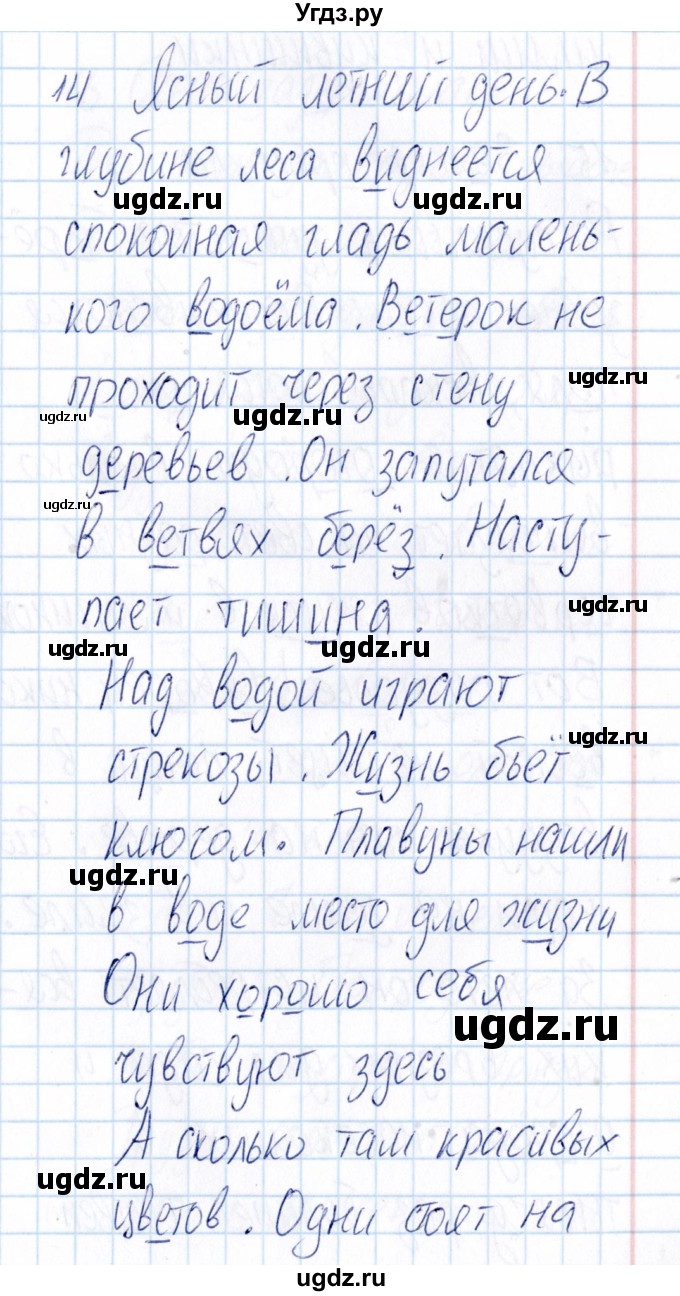 Угдз.ру
14 Ясный летний день. В
глубине леса виднеется
ugdz.ru ugdz.ru
спокойная гладь малень-
кого водоёма. Ветерок не
ugdz.ru
проходит через стену
ugdz.ru ugdz.ru
деревьев. Он запутался
ugdz.ru
в ветвях берёз. Насту-
ugdz.ru
пает тишина.
ugdz.ru ugdz.ru
Над водой играют
ugdz.ru
стрекозы. Жизнь бьёт
ключом. Плавуны нашли
ugdz.ru
в воде место для жизни
Они хорошо себя
ugdz.ru
чувствуют здесь
А сколько там красивых
ugdz.ru
цветов. Одни стоят на
ugdz.ru